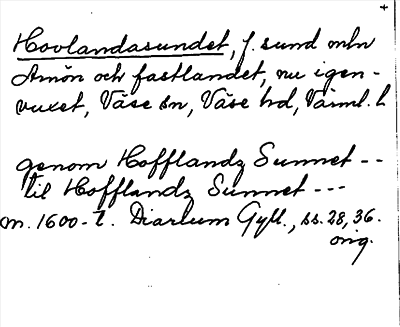 Hovlandasundet, f. sund mln
Amön och fastlandet, nu igen-
vuxet, Väse sn, Väse hd, Värml. l.
genom Hofflandz Sunnet --
til Hofflandz Sunnet ---
m. 1600-t. Diarium Gyll., ss. 28, 36.
orig.